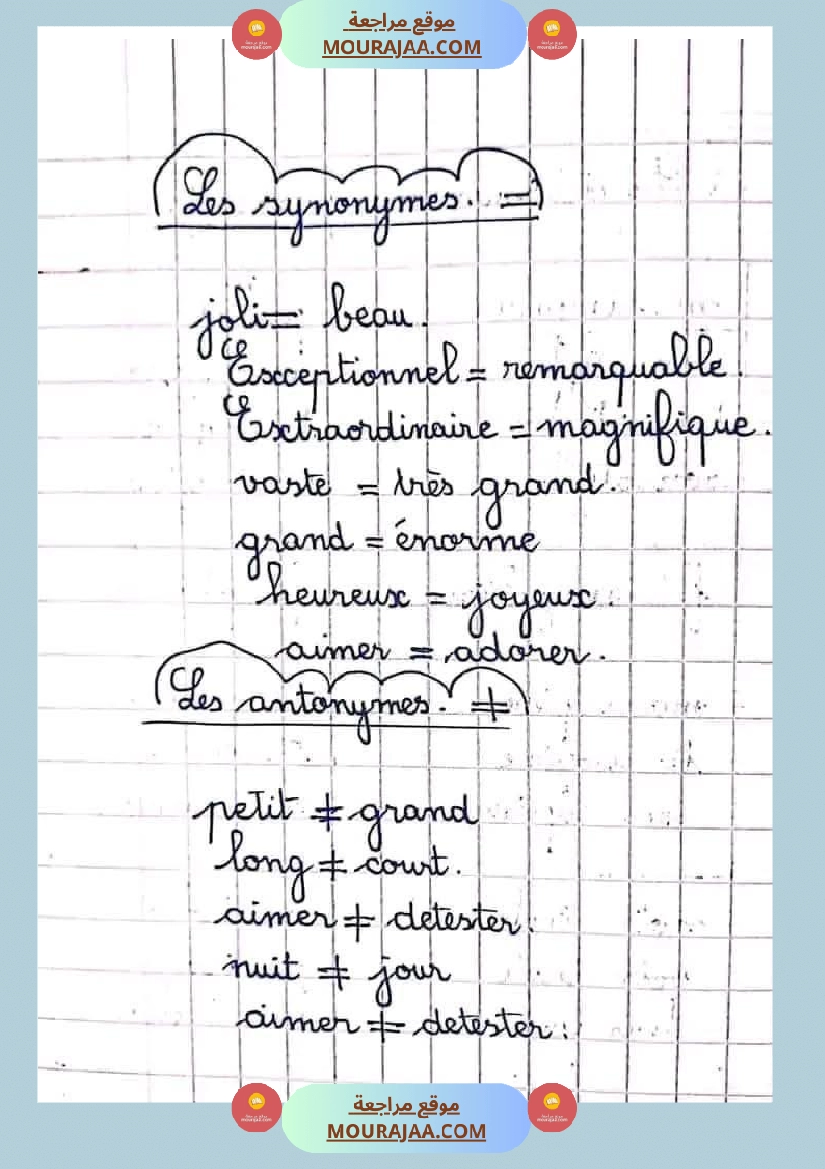 موقع مراجعة
MOURAJAA.COM
Les synonymes. =
joli = beau.
Exceptionnel = remarquable.
Extraordinaire = magnifique.
vaste = très grand.
grand = énorme
heureux = joyeux.
aimer = adorer.
Les antonymes. ≠
petit ≠ grand
long ≠ court.
aimer ≠ detester.
nuit ≠ jour
aimer ≠ detester.
موقع مراجعة
MOURAJAA.COM